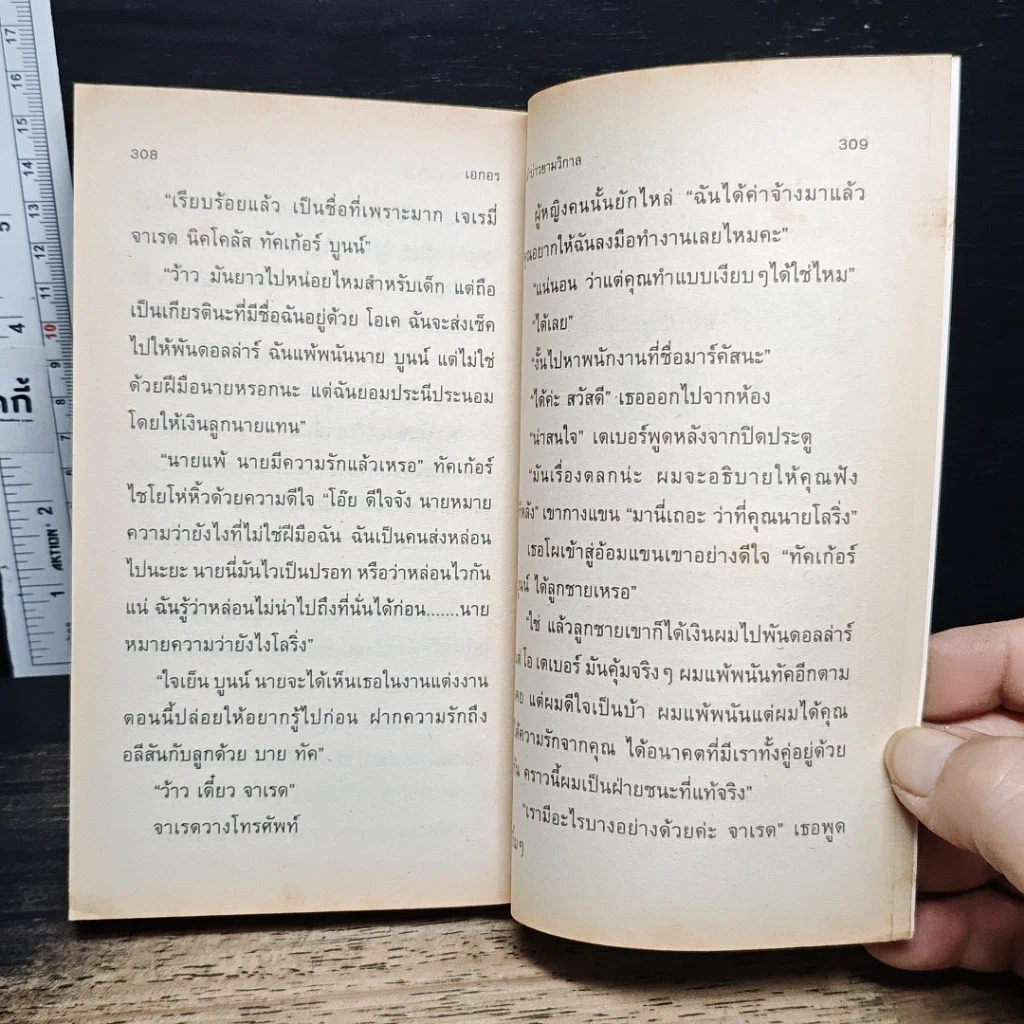 308
เอกอร
“เรียบร้อยแล้ว เป็นชื่อที่เพราะมาก เจเรมี่
จาเรด นิคโคลัส ทัคเก้อร์ บูนน์”
“ว้าว มันยาวไปหน่อยไหมสำหรับเด็ก แต่ถือ
เป็นเกียรตินะที่มีชื่อฉันอยู่ด้วย โอเค ฉันจะส่งเช็ค
ไปให้พันดอลล่าร์ ฉันแพ้พนันนาย บูนน์ แต่ไม่ใช่
ด้วยฝีมือนายหรอกนะ แต่ฉันยอมประนีประนอม
โดยให้เงินลูกนายแทน”
“นายแพ้ นายมีความรักแล้วเหรอ” ทัคเก้อร์
ไชโยโห่หิ้วด้วยความดีใจ “โอ๊ย ดีใจจัง นายหมาย
ความว่ายังไงที่ไม่ใช่ฝีมือฉัน ฉันเป็นคนส่งหล่อน
ไปนะยะ นายนี่มันไวเป็นปรอท หรือว่าหล่อนไวกัน
แน่ ฉันรู้ว่าหล่อนไม่น่าไปถึงที่นั่นได้ก่อน.......นาย
หมายความว่ายังไงโลริ่ง”
“ใจเย็น บูนน์ นายจะได้เห็นเธอในงานแต่งงาน
ตอนนี้ปล่อยให้อยากรู้ไปก่อน ฝากความรักถึง
อลีสันกับลูกด้วย บาย ทัค”
“ว้าว เดี๋ยว จาเรด”
จาเรดวางโทรศัพท์
309
บ่าวยามวิกาล
ผู้หญิงคนนั้นยักไหล่ “ฉันได้ค่าจ้างมาแล้ว
คุณอยากให้ฉันลงมือทำงานเลยไหมคะ”
“แน่นอน ว่าแต่คุณทำแบบเงียบๆได้ใช่ไหม”
“ได้เลย”
“งั้นไปหาพนักงานที่ชื่อมาร์คัสนะ”
“ได้ค่ะ สวัสดี” เธอออกไปจากห้อง
“น่าสนใจ” เดเบอร์พูดหลังจากปิดประตู
“มันเรื่องตลกน่ะ ผมจะอธิบายให้คุณฟัง
หลัง” เขากางแขน “มานี่เถอะ ว่าที่คุณนายโลริ่ง”
เธอโผเข้าสู่อ้อมแขนเขาอย่างดีใจ “ทัคเก้อร์
บูนน์ ได้ลูกชายเหรอ”
“ใช่ แล้วลูกชายเขาก็ได้เงินผมไปพันดอลล่าร์
โอ เดเบอร์ มันคุ้มจริงๆ ผมแพ้พนันทัคอีกตาม
เคย แต่ผมดีใจเป็นบ้า ผมแพ้พนันแต่ผมได้คุณ
ได้ความรักจากคุณ ได้อนาคตที่มีเราทั้งคู่อยู่ด้วย
กัน คราวนี้ผมเป็นฝ่ายชนะที่แท้จริง”
“เรามีอะไรบางอย่างด้วยค่ะ จาเรด” เธอพูด